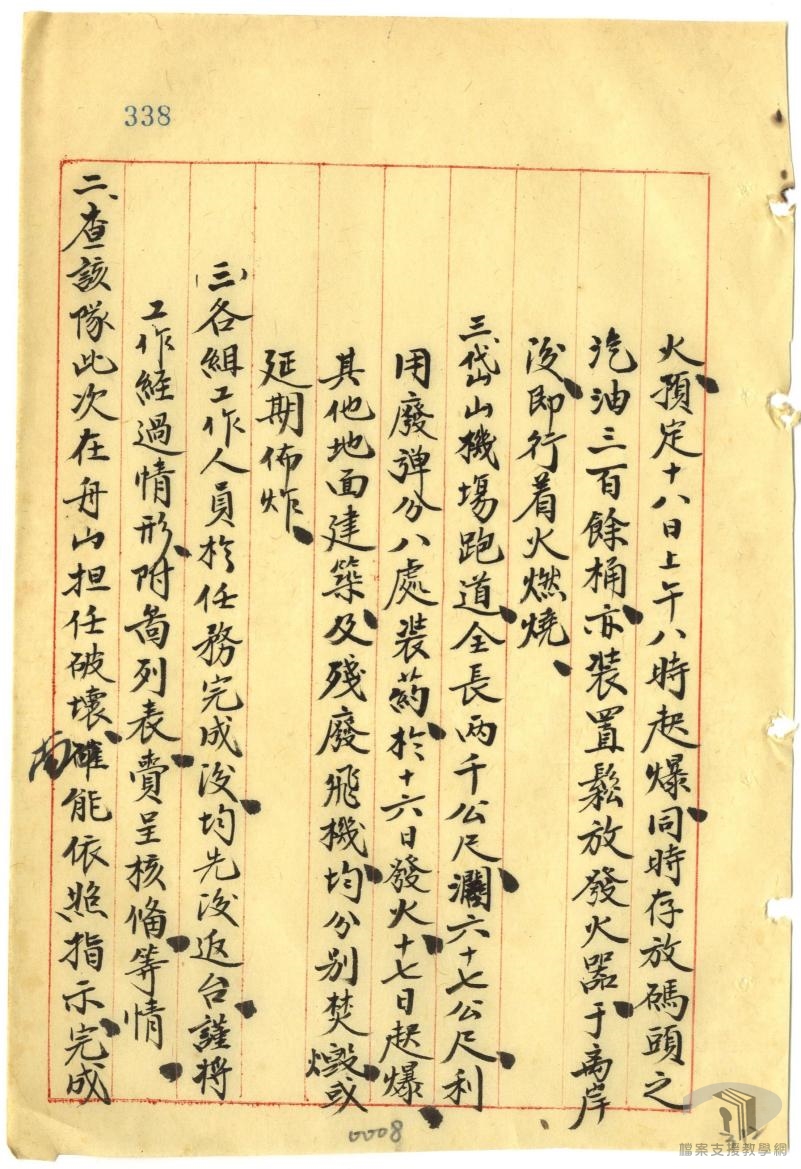 338
火、預定十八日上午八時起爆、同時存放碼頭之
汽油三百餘桶、亦裝置鬆放發火器于离岸
後、即行着火燃燒、
三、岱山機場跑道、全長兩千公尺、濶六十七公尺、利
用廢彈分八處裝葯、於十六日發火、十七日起爆、
其他地面建築、及殘廢飛機、均分別焚燬、或
延期佈炸、
㈢各組工作人員於任務完成後、均先後返台、謹將
工作經過情形、附圖列表、賫呈核備、等情、
二、查該隊此次在舟山担任破壞、尚確能依照指示、完成
0008
檔案支援教學網